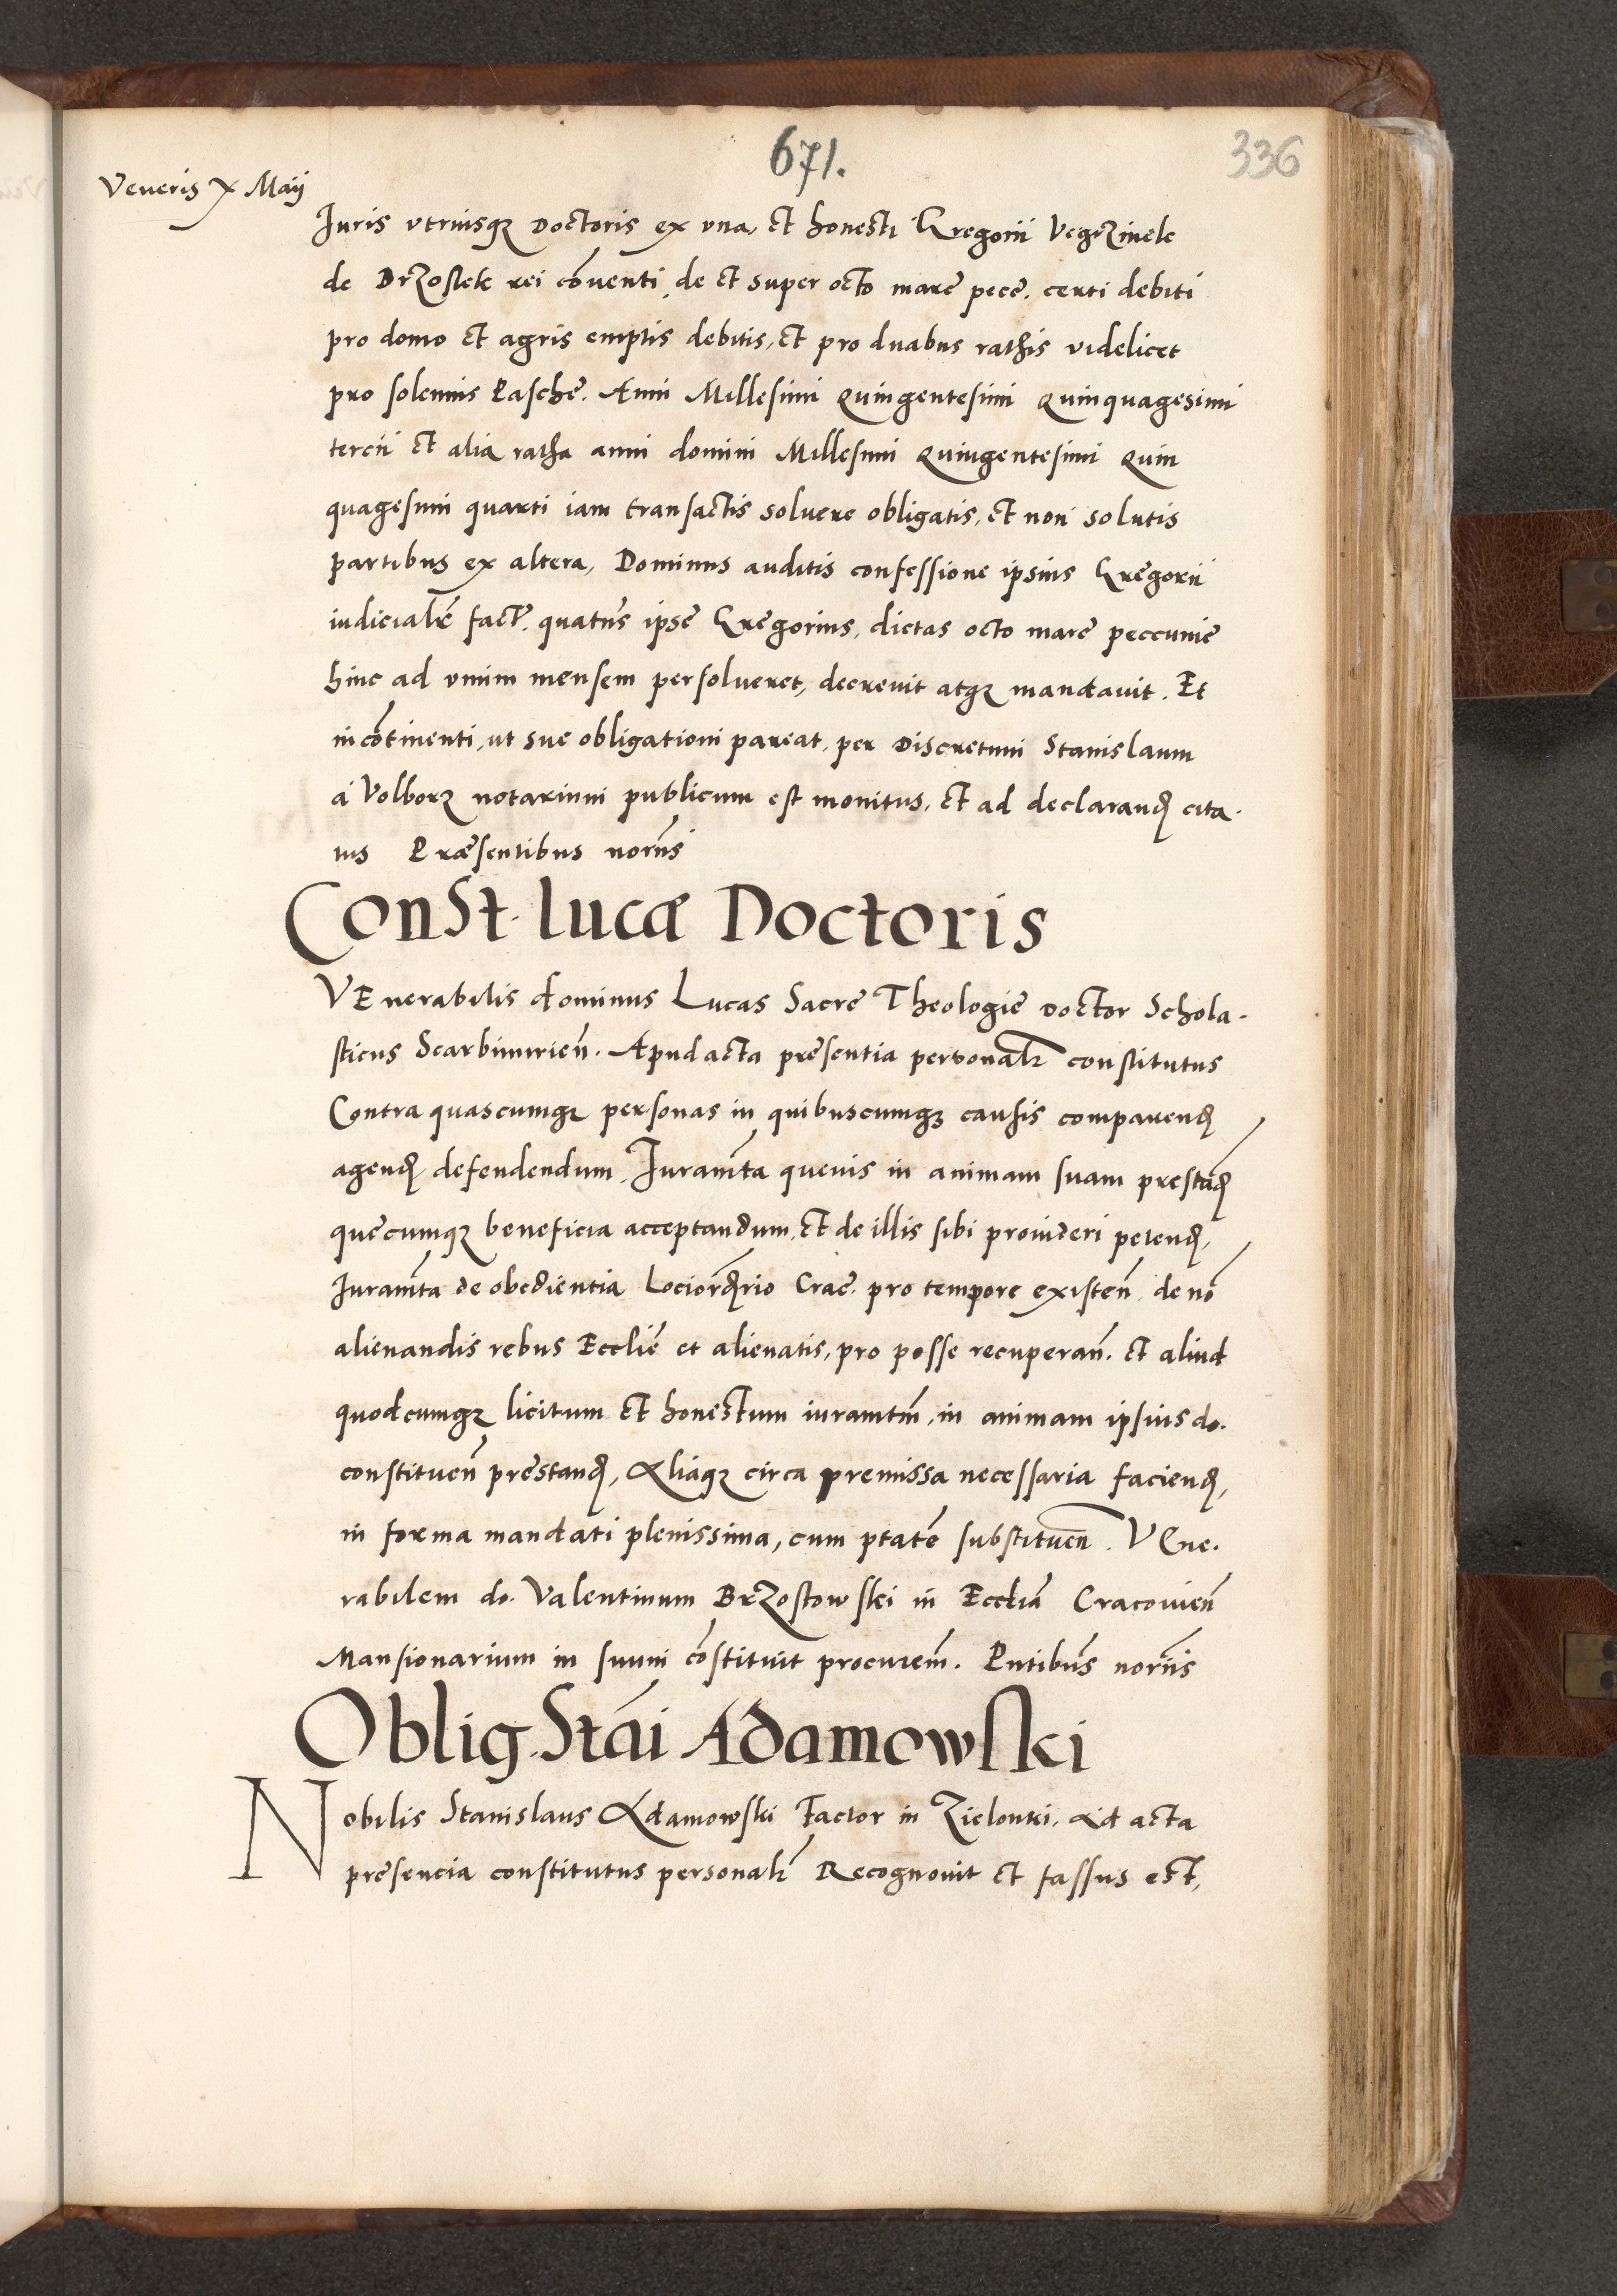 671.
336
Veneris X Maij
Iuris vtriusqz Doctoris ex vna, et honesti Gregorii Vegrzinele
de Drzostek rei cōventi, de et super octo marc̄ pecc̄. certi debiti
pro domo et agris emptis debitis, et pro duabus rathis videlicet
pro solennis Paschē. Anni Millesimi Quingentesimi Quinquagesimi
tercii et alia ratha anni domini Millesimi Quingentesimi Quin
quagesimi quarti iam transactis solvere obligatis, et non solutis
partibus ex altera, Dominus auditis confessione ipsius Gregorii
iudicialr̄ fact̄. quatn̄s ipse Gregorius, dictas octo marc̄ peccuniē
hinc ad vnum mensem persolveret, decrevit atqz mandavit. Et
incōtinenti, ut sue obligationi pareat, per Discretum Stanislaum
a Volborz notarium publicum est monitus, et ad declarand̄ cita-
tus Præsentibus norn̄s
Const. lucæ Doctoris
VEnerabilis dominus Lucas Sacrē Theologiē Doctor Schola-
sticus Scarbimirien̄. Apud acta prēsentia personalr̄ constitutus
Contra quascumqz personas in quibuscumqz causis comparend̄
agend̄ defendendum, Iuram̄ta quevis in animam suam prēstād̄
quēcumqz beneficia acceptandum, et de illis sibi provideri petend̄,
Iuram̄ta de obedientia Lociord̄rio Crac̄. pro tempore existen̄ de nō
alienandis rebus Eccliē et alienatis, pro posse recuperan̄. et aliud
quodcumqz licitum et honestum iuramtm̄, in animam ipsius do.
constituen̄ prēstand̄, Aliaqz circa premissa necessaria faciend̄,
in forma mandati plenissima, cum ptatē substituen̄. VEne-
rabilem do. Valentinum Brzostowski in Eccliā Cracovien̄
Mansionarium in suum cōstituit procurem̄. Pntibus̄ norn̄s
Oblig. Stāi Adamowski
Nobilis Stanislaus Adamowski Factor in Zielonki, Ad acta
presencia constitutus personalr̄ Recognovit et fassus est,